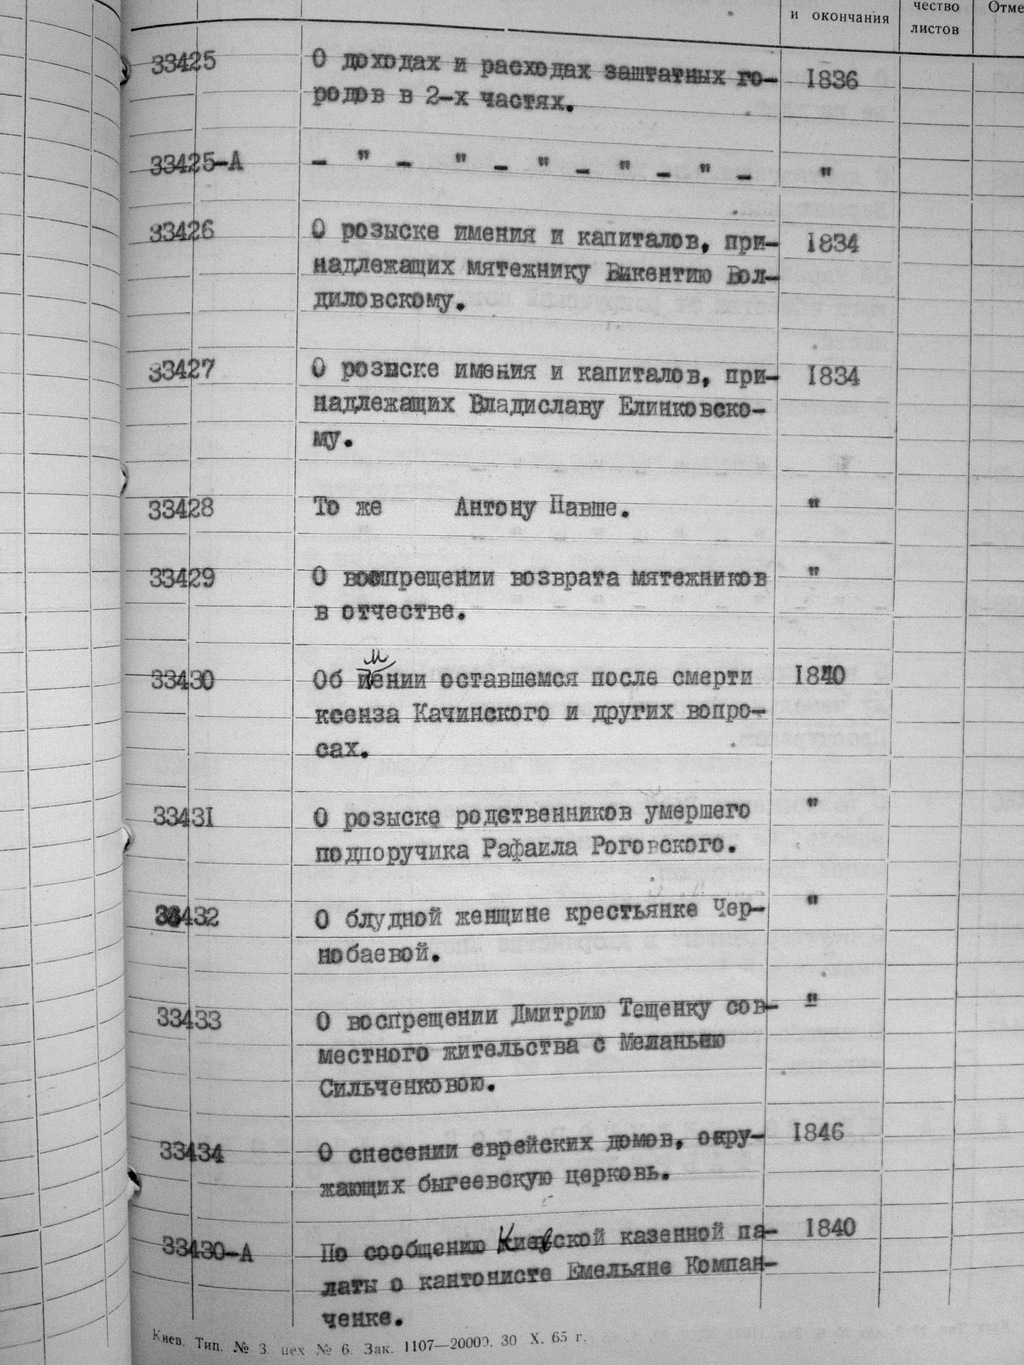 и окончания
чество
листов
Отме
33425 О доходах и расходах заштатных го- 1836
родов в 2-х частях.
33425-А - " - " - " - " - " - "
33426 О розыске имения и капиталов, при- 1834
надлежащих мятежнику Викентию Вол-
диловскому.
33427 О розыске имения и капиталов, при- 1834
надлежащих Владиславу Елинковско-
му.
33428 То же Антону Павше. "
33429 О воспрещении возврата мятежников "
в отчестве.
33430 Об имении оставшемся после смерти 1840
ксенза Качинского и других вопро-
сах.
33431 О розыске родственников умершего "
подпоручика Рафаила Роговского.
33432 О блудной женщине крестьянке Чер- "
нобаевой.
33433 О воспрещении Дмитрию Тещенку сов- "
местного жительства с Меланьею
Сильченковою.
33434 О снесении еврейских домов, окру- 1846
жающих быгеевскую церковь.
33430-А По сообщению Киевской казенной па- 1840
латы о кантонисте Емельяне Компан-
ченке.
Киев. Тип. № 3. цех № 6. Зак. 1107—20000. 30 X. 65 г.